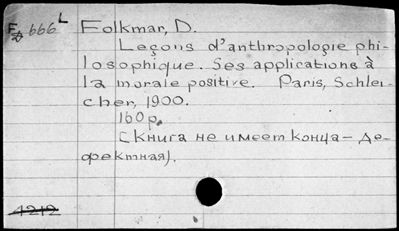 F 666 L
Folkmar, D.
Leçons d'anthropologie phi-
losophique. Ses applications à
la morale positive. Paris, Schlei-
cher, 1900.
160p.
(Книга не имеет конца - де-
фектная).
4212